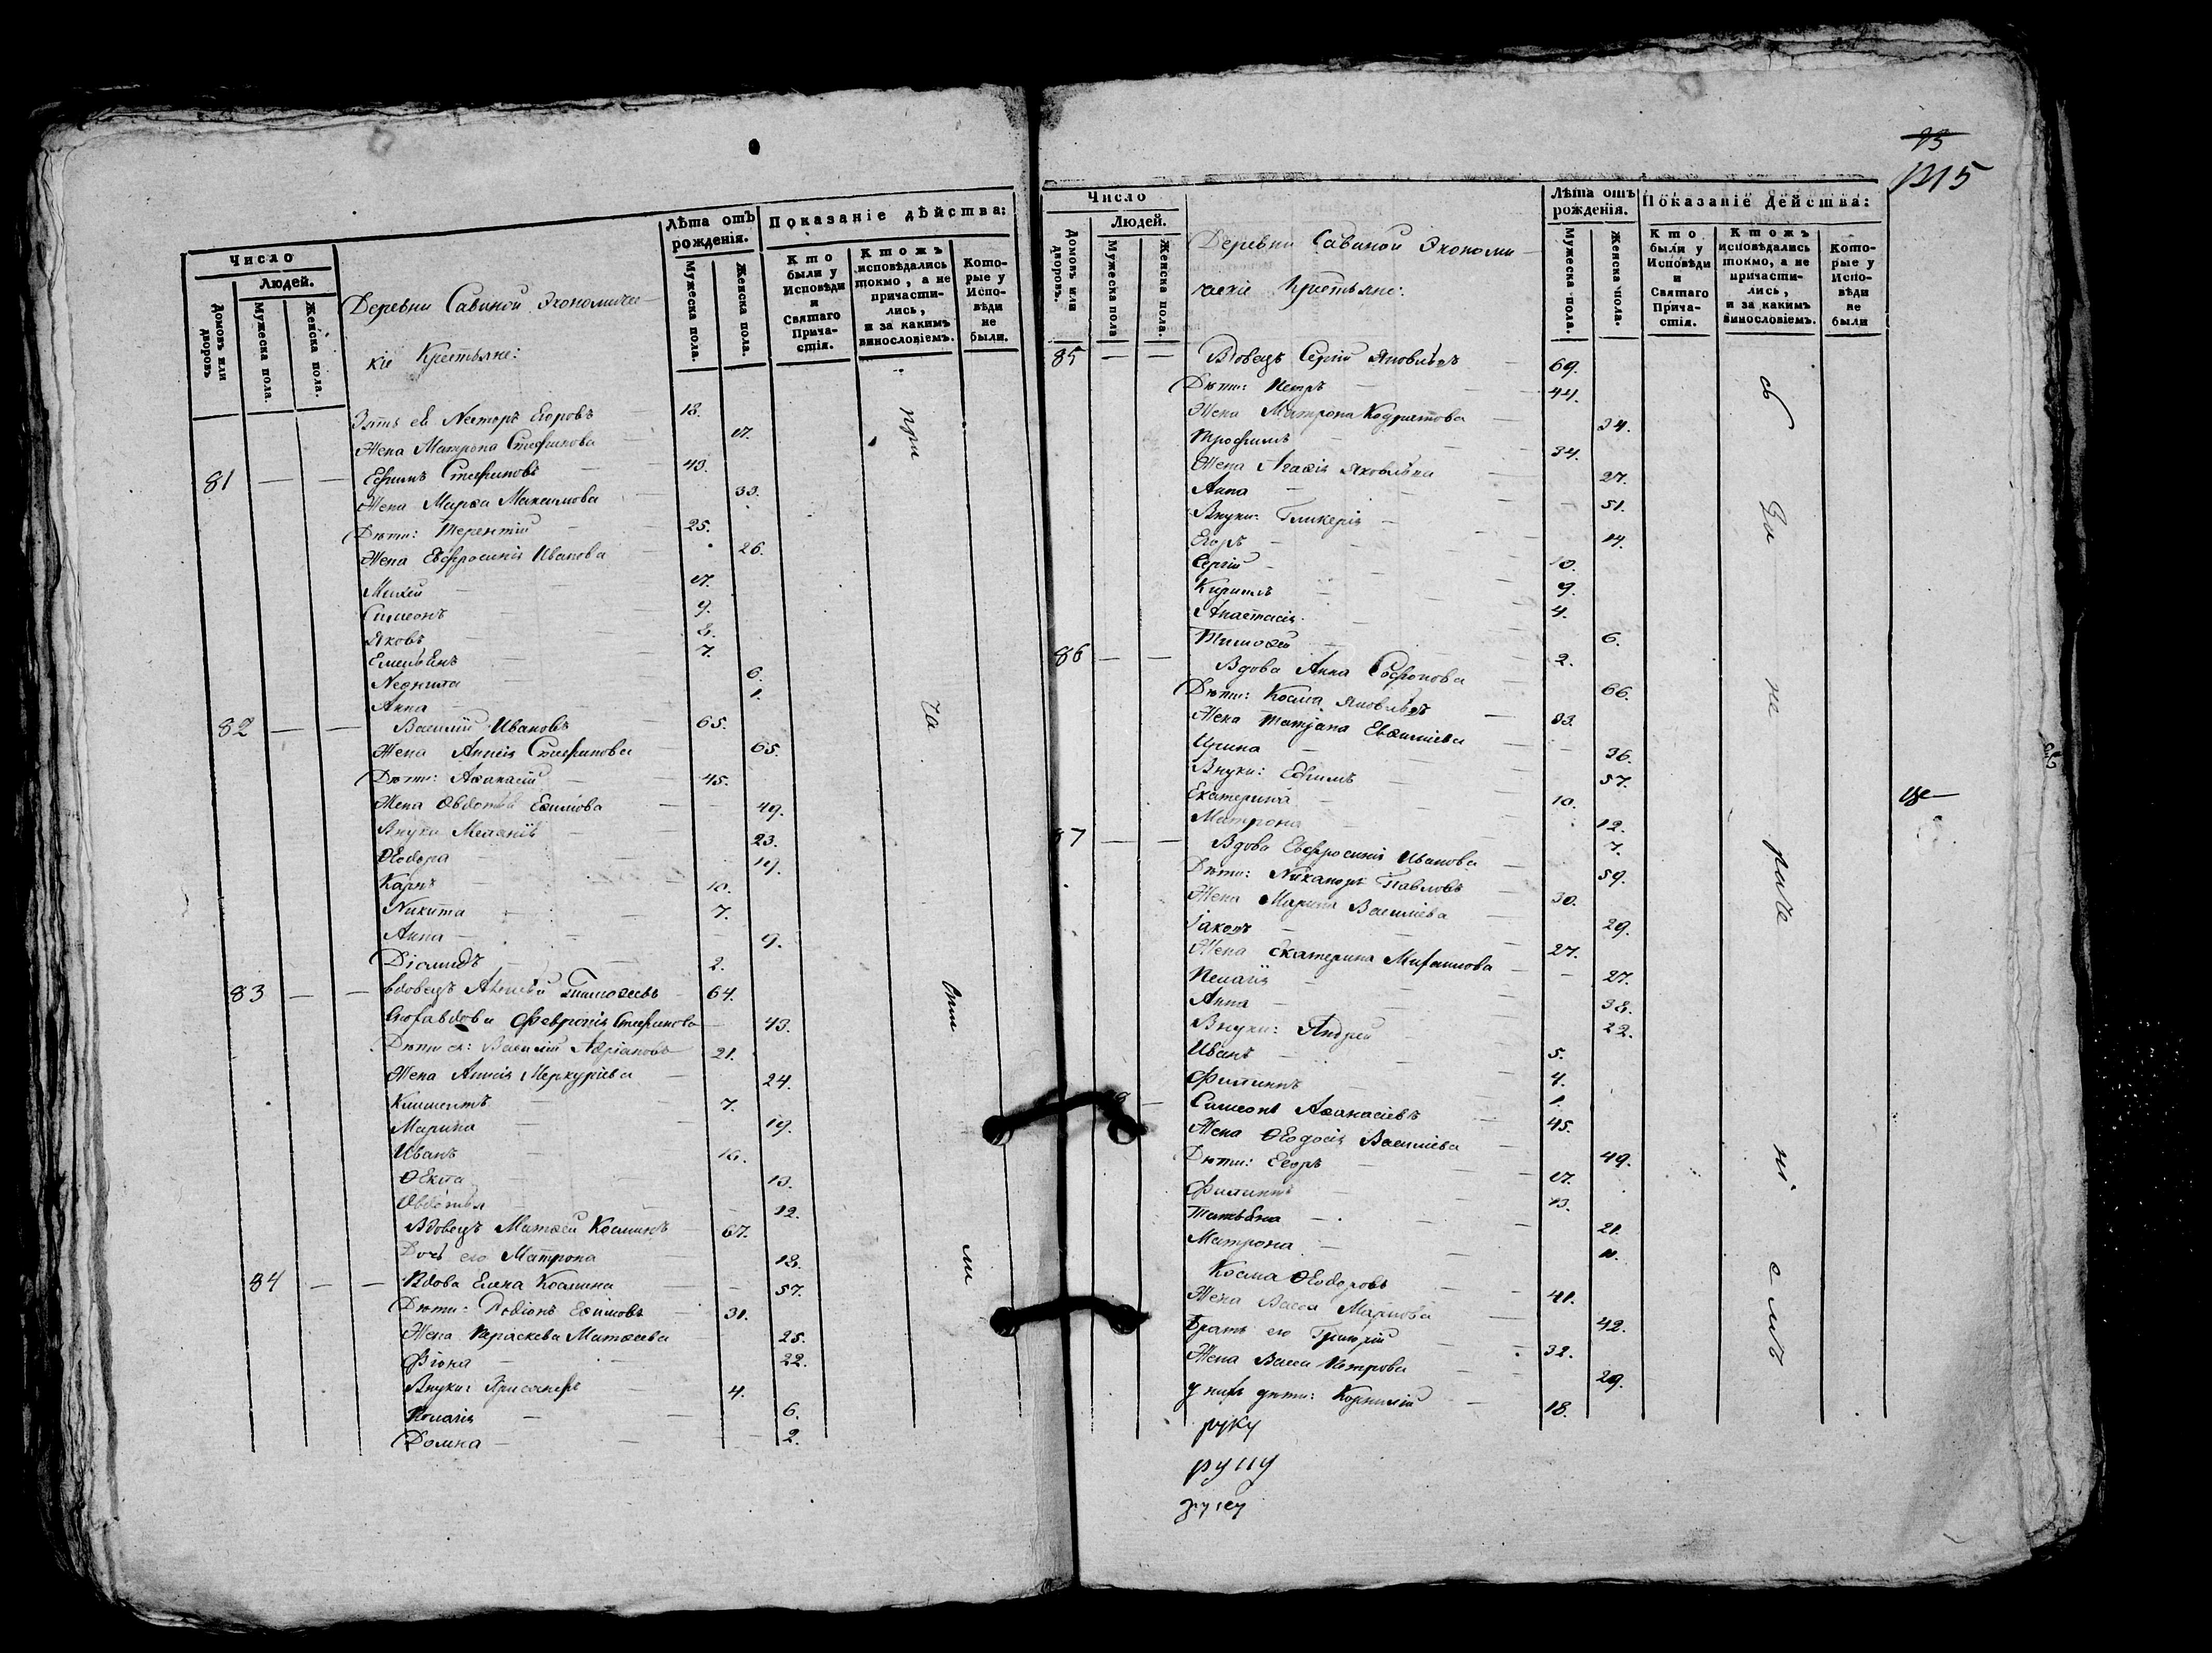 Число
Людей.
Домовъ или дворовъ
Мужеска пола.
Женска пола.
Деревни Савиной Экономичес-
кіе Крестьяне:
Лѣта отъ рожденія.
Мужеска пола.
Женска пола.
Показаніе дѣйства:
Кто были у Исповѣди и Святаго Причастія.
Ктожъ исповѣдались токмо, а не причастились, и за какимъ винословіемъ.
Которые у Исповѣди не были.
Зять ея Несторъ Егоровъ 18.
Жена Матрона Стефанова 17.
81 — — Ефимъ Стефановъ 43.
Жена Марѳа Максимова 33.
Дѣти: Терентій 25.
Жена Евфросинія Иванова 26.
17.
Симеонъ 9.
Яковъ 8.
Емельянъ 7.
6.
Анна 1.
82 — — Василій Ивановъ 65.
Жена Анисія Стефанова 65.
Дѣти: Аѳанасій 45.
Жена Авдотья Еѳимова 49.
Внуки Меланія 23.
Ѳеодора 19.
Карпъ 10.
Никита 7.
Анна 9.
Діомидъ 2.
83 — — Вдовецъ Алексѣй Тимоѳеевъ 64.
Февронія Стефанова 43.
Дѣти ея: Василій Адріановъ 21.
Жена Анисія Меркуріева 24.
Климентъ 7.
Марина 19.
Иванъ 16.
Ѳекла 13.
Авдотья 12.
Вдовецъ Матѳей Косминъ 67.
Дочь его Матрона 18.
84 — — Вдова Елена Космина 57.
Дѣти: Родіонъ Еѳимовъ 31.
Жена Параскева Матѳеева 25.
Фіона 22.
Внуки: Хрисанфъ 4.
Пелагія 6.
Домна 2.
при
ча
сти
ли
93
1215
Число
Людей.
Домовъ или дворовъ.
Мужеска пола
Женска пола.
Деревни Савиной Экономи-
ческіе Крестьяне:
Лѣта отъ рожденія.
Мужеска пола.
Женска пола.
Показаніе Действа:
Кто были у Исповѣди и Святаго Причастія.
Ктожъ исповѣдались токмо, а не причастились, и за какимъ винословіемъ.
Которые у Исповѣди не были
85 — — Вдовецъ Сергій Яковлевъ 69.
Дѣти: Петръ 44.
Жена Матрона Кодратова 34.
Трофимъ 34.
Жена Агаѳія Яковлева 27.
Анна 51.
Внуки: Гликерія 14.
Егоръ 10.
Сергій 9.
Кириллъ 4.
Анастасія 6.
Тимоѳей 2.
86 — — Вдова Анна Софонова 66.
Дѣти: Косма Яковлевъ 33.
Жена Татіана Евѳиміева 36.
Ирина 57.
Внуки: Ефимъ 10.
Екатерина 12.
Матрона 7.
87 — — Вдова Евфросинія Иванова 59.
Дѣти: Никаноръ Павловъ 30.
Жена Марина Василіева 29.
Іаковъ 27.
Жена Екатерина Михаилова 27.
Пелагія 38.
Анна 22.
Внуки: Андрей 5.
Иванъ 4.
Филиппъ 1.
Симеонъ Аѳанасіевъ 45.
Жена Ѳеодосія Василіева 49.
Дѣти: Егоръ 17.
Филиппъ 13.
Татьяна 21.
Матрона 11.
Косма Ѳеодоровъ 41.
Жена Васса Маркова 42.
Братъ его Григорій 32.
Жена Васса Петрова 29.
У нихъ дѣти: Корнилій 18.
руку